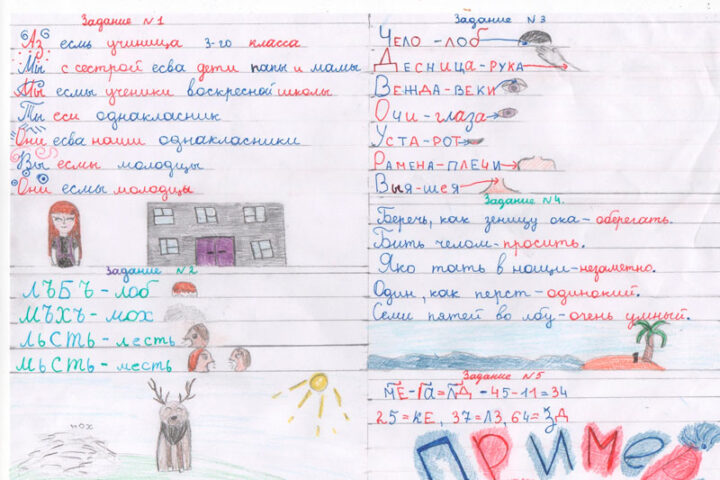 Задание №1
Аз есмь учиница 3-го класса
Мы с сестрой есва дети папы и мамы
Мы есмы ученики воскресной школы
Ты еси однакласник
Они есва наши однакласники
Вы есмы молодцы
Они есмы молодцы
Задание №2
ЛЪБЪ - лоб
МЪХЪ - мох
ЛЬСТЬ - лесть
МЬСТЬ - месть
мох
Задание №3
Чело - лоб
Десница - рука
Вежда - веки
Очи - глаза
Уста - рот
Рамена - плечи
Выя - шея
Задание №4.
Беречь, как зеницу ока - оберегать.
Бить челом - просить.
Яко тать в нощи - незаметно.
Один, как перст - одинокий.
Семи пятей во лбу - очень умный.
Задание №5
МЕ - ГА = ЛД - 45 - 11 = 34
25 = КЕ, 37 = ЛЗ, 64 = ЗД
ПРИМЕ